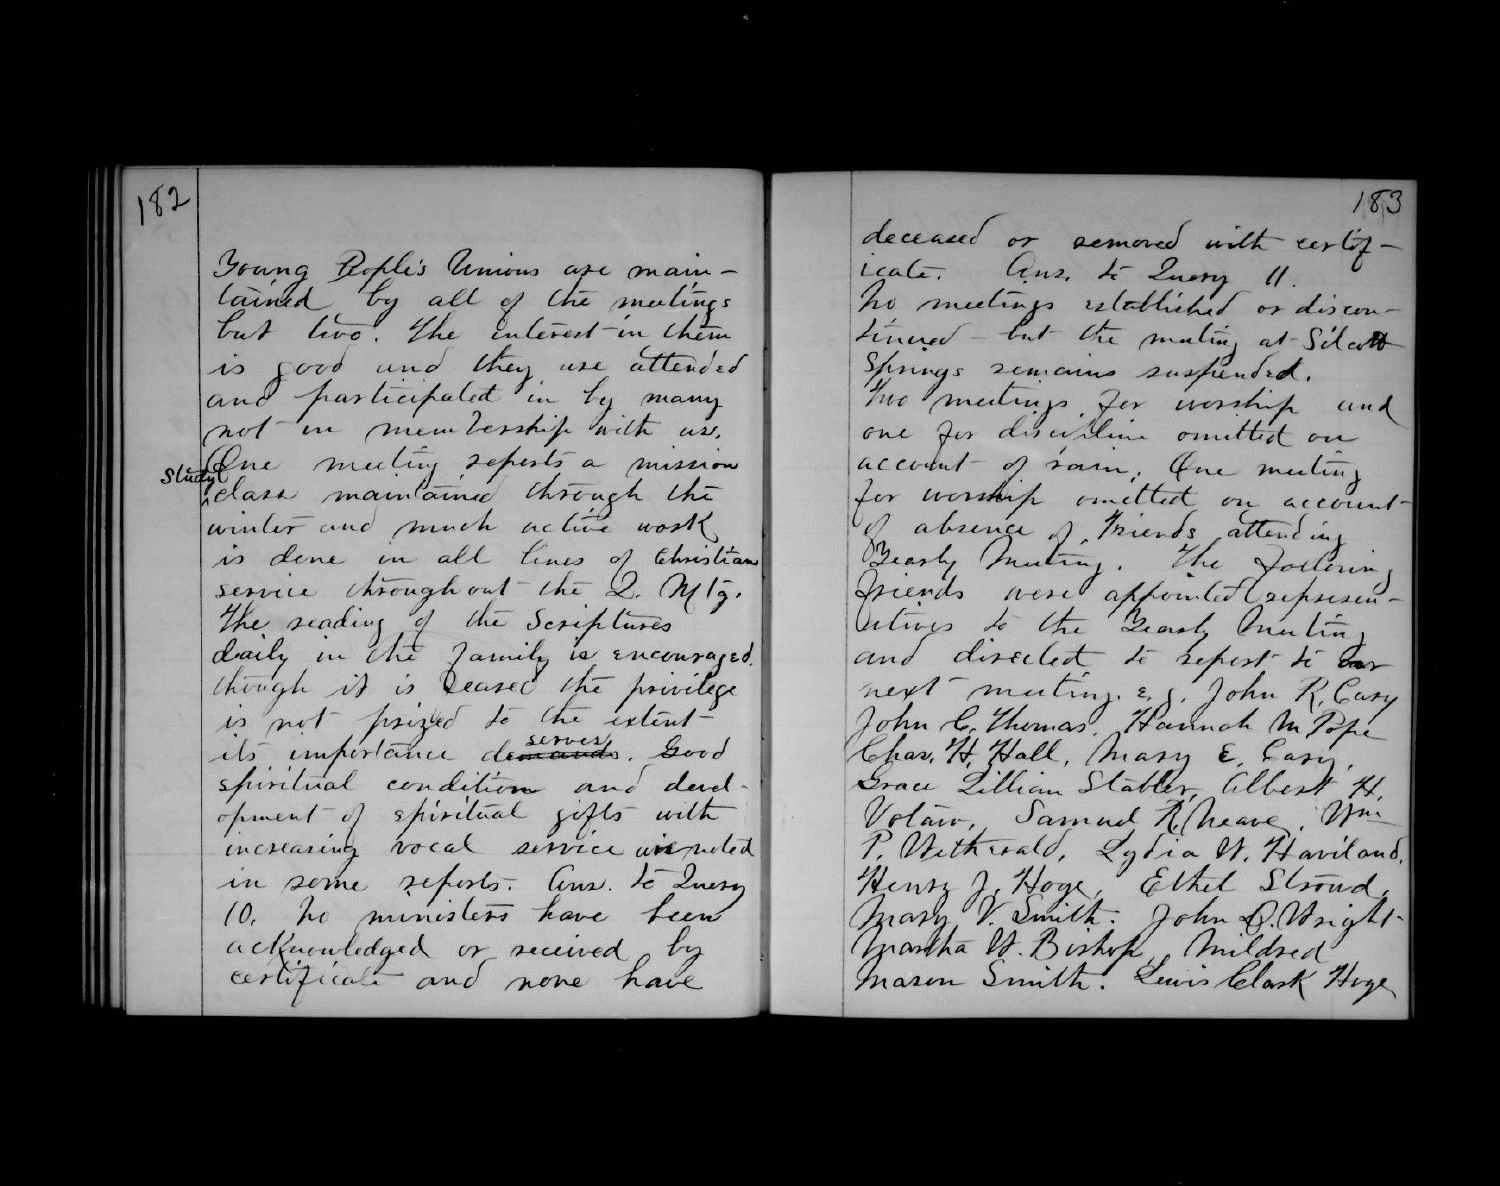 182
Young People's Unions are main-
tained by all of the meetings
but two. The interest in them
is good and they are attended
and participated in by many
not in membership with us.
One meeting reports a mission
study class maintained through the
winter and much active work
is done in all lines of Christian
service throughout the Q. Mtg.
The reading of the Scriptures
daily in the family is encouraged.
though it is feared the privilege
is not prized to the extent
its importance demands serves. Good
spiritual condition and devel-
opment of spiritual gifts with
increasing vocal service is noted
in some reports. Ans. to Query
10. No ministers have been
acknowledged or received by
certificate and none have
183
deceased or removed with certif-
icate. Ans. to Query 11.
No meetings established or discon-
tinued - but the meeting at Silcott
Springs remains suspended.
Two meetings for worship and
one for discipline omitted on
account of rain. One meeting
for worship omitted on account
of absence of Friends attending
Yearly Meeting. The following
friends were appointed represen-
tatives to the Yearly Meeting
and directed to report to our
next meeting. e.g. John R. Cary
John C. Thomas, Hannah M Pope
Chas. H. Hall, Mary E. Cary,
Grace Lillian Stabler, Albert H.
Votaw, Samuel R. Neave, Wm
P. Wetherald, Lydia W. Haviland,
Henry J. Hoge, Ethel Stroud,
Mary V. Smith. John D. Wright
Martha W. Bishop, Mildred
Mason Smith. Lewis Clark Hoge